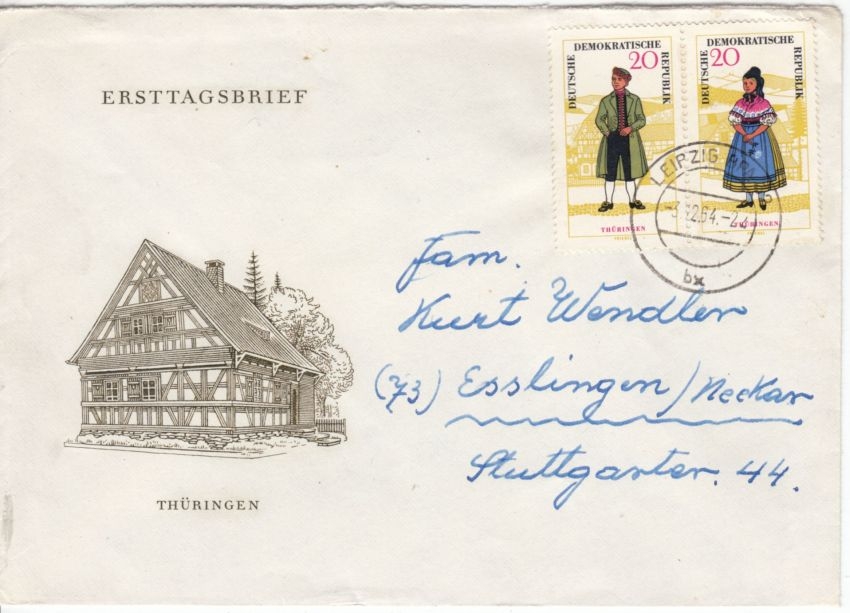 ERSTTAGSBRIEF
DEUTSCHE DEMOKRATISCHE REPUBLIK
20
THÜRINGEN
DEUTSCHE DEMOKRATISCHE REPUBLIK
20
THÜRINGEN
LEIPZIG
12.64.-2
bx
Fam.
Kurt Wendler
(73) Esslingen/Neckar
Stuttgarter. 44.
THÜRINGEN